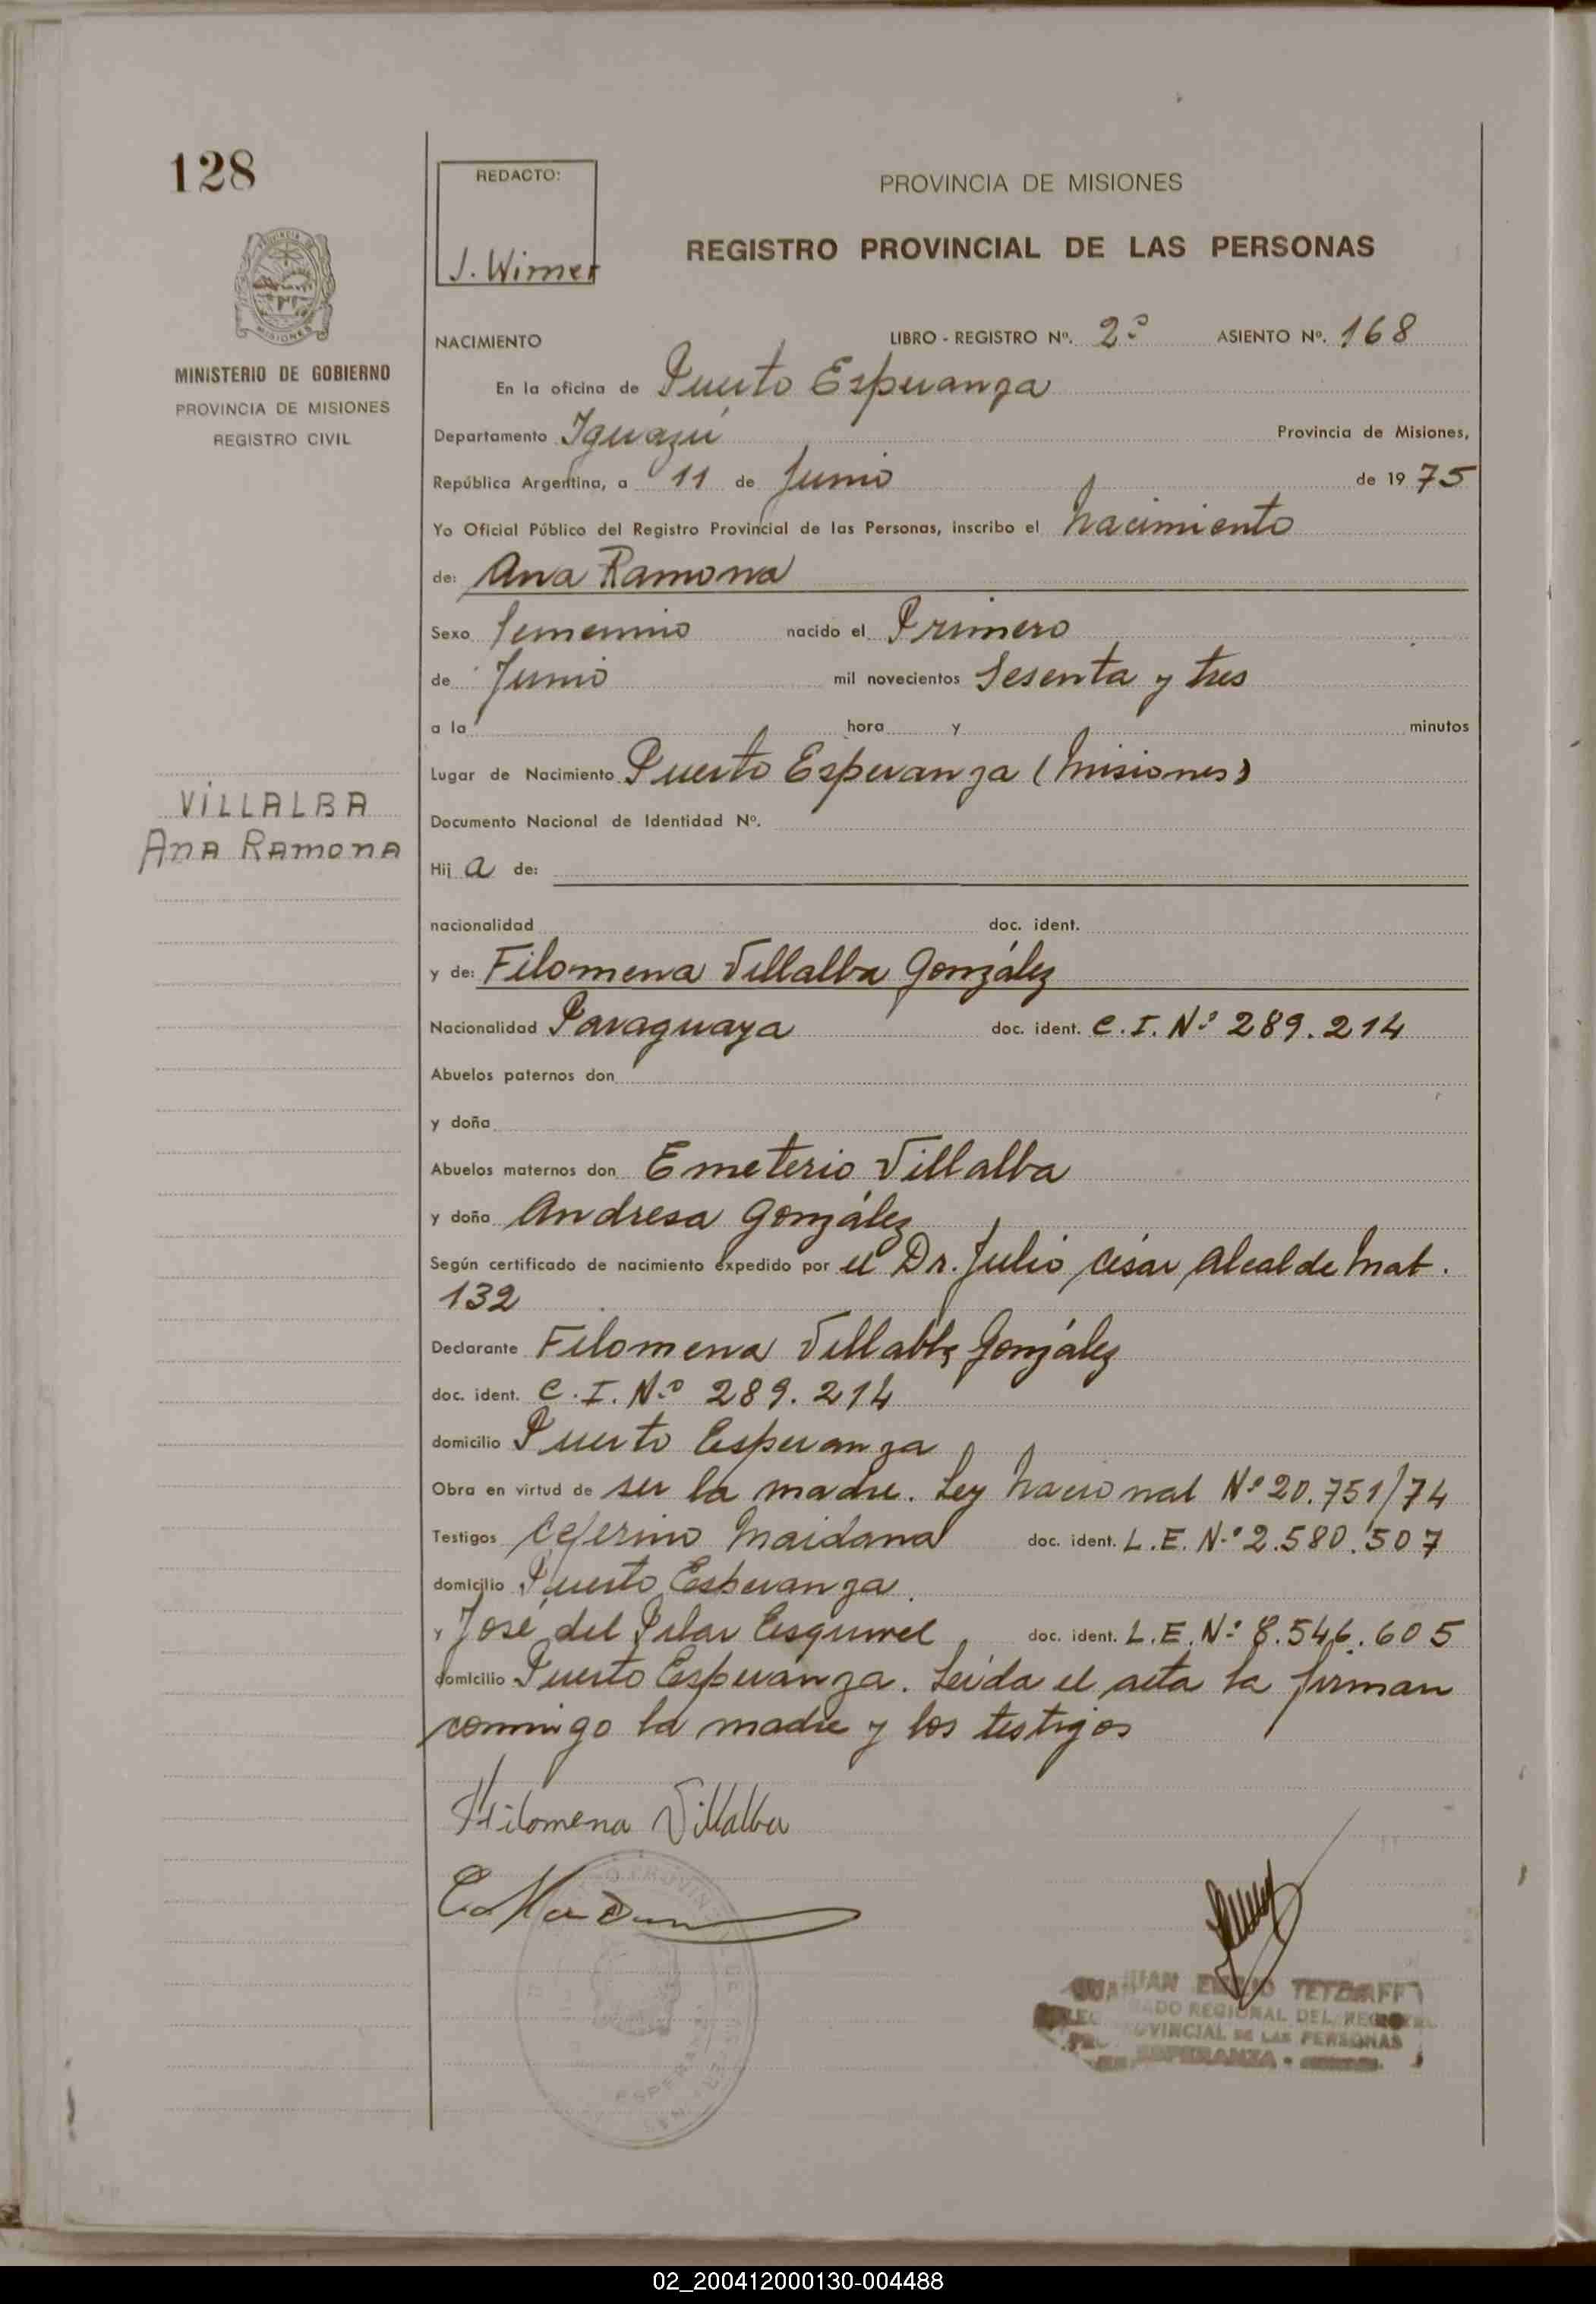 128
REDACTO:
J. Wirner
PROVINCIA DE MISIONES
REGISTRO PROVINCIAL DE LAS PERSONAS
MINISTERIO DE GOBIERNO
PROVINCIA DE MISIONES
REGISTRO CIVIL
NACIMIENTO LIBRO - REGISTRO Nº. 2º ASIENTO Nº. 168
En la oficina de Puerto Esperanza
Departamento Iguazú Provincia de Misiones,
República Argentina, a 11 de Junio de 1975
Yo Oficial Público del Registro Provincial de las Personas, inscribo el Nacimiento
de: Ana Ramona
Sexo femenino nacido el Primero
de Junio mil novecientos Sesenta y tres
a la hora y minutos
Lugar de Nacimiento Puerto Esperanza (Misiones)
VILLALBA
Ana Ramona
Documento Nacional de Identidad Nº.
Hij a de:
nacionalidad doc. ident.
y de: Filomena Villalba González
Nacionalidad Paraguaya doc. ident. C.I. Nº 289.214
Abuelos paternos don
y doña
Abuelos maternos don Emeterio Villalba
y doña Andresa González
Según certificado de nacimiento expedido por el Dr. Julio César Alcalde Mat.
132
Declarante Filomena Villalba González
doc. ident. C.I. Nº 289.214
domicilio Puerto Esperanza
Obra en virtud de ser la madre. Ley Nacional Nº 20.751/74
Testigos Ceferino Maidana doc. ident. L.E. Nº 2.580.507
domicilio Puerto Esperanza.
y José del Pilar Esquivel doc. ident. L.E. Nº 8.546.605
domicilio Puerto Esperanza. Leída el acta la firman
conmigo la madre y los testigos
Filomena Villalba
JUAN EMILIO
DELEGADO REGIONAL DEL REGISTRO
PROVINCIAL DE LAS PERSONAS
ESPERANZA
02_200412000130-004488